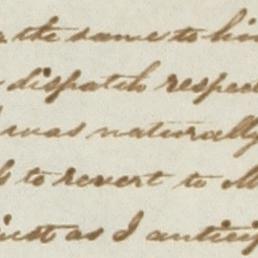 the same to him
dispatch respec
was naturally
to revert to M
just as I antici